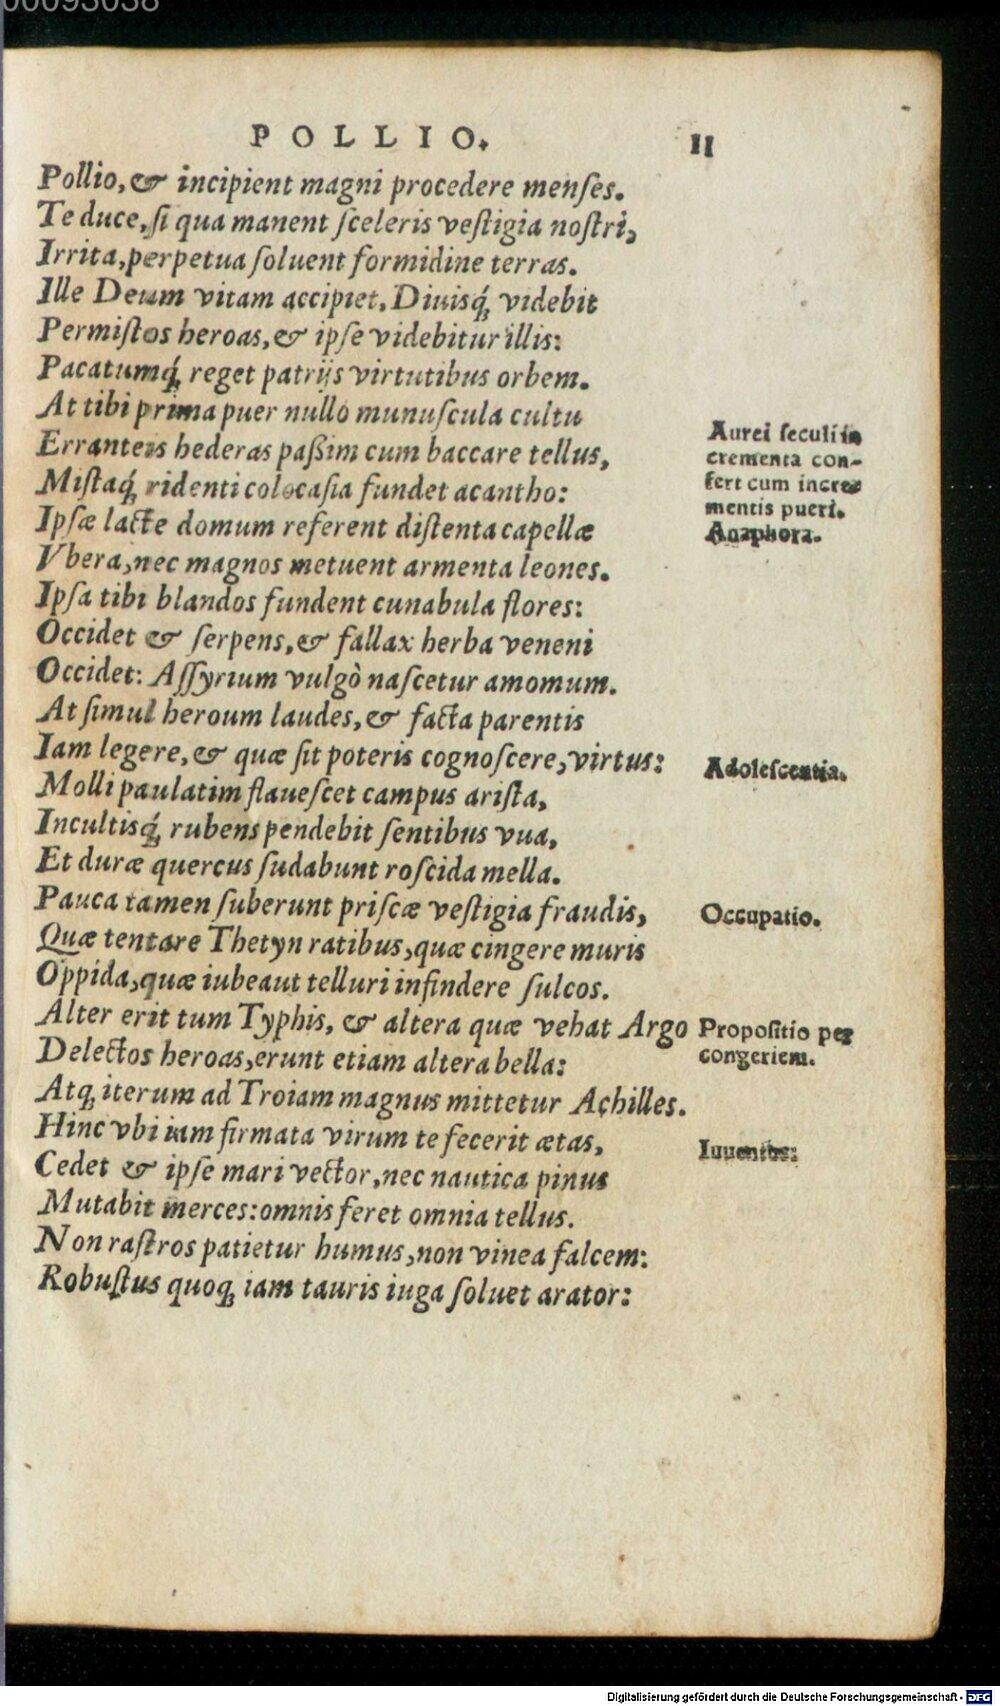 00093038
POLLIO. 11
Pollio, & incipient magni procedere menſes.
Te duce, ſi qua manent ſceleris veſtigia noſtri,
Irrita, perpetua ſoluent formidine terras.
Ille Deum vitam accipiet, Diuisq́; videbit
Permiſtos heroas, & ipſe videbitur illis:
Pacatumq́; reget patrijs virtutibus orbem.
At tibi prima puer nullo munuſcula cultu
Aurei ſeculi in
Erranteis hederas paßim cum baccare tellus,
crementa con-
Miſtaq́; ridenti colocaſia fundet acantho:
fert cum incre-
mentis pueri.
Ipſæ lacte domum referent diſtenta capellæ
Anaphora.
Vbera, nec magnos metuent armenta leones.
Ipſa tibi blandos fundent cunabula flores:
Occidet & ſerpens, & fallax herba veneni
Occidet: Aſſyrium vulgò naſcetur amomum.
At ſimul heroum laudes, & facta parentis
Iam legere, & quæ ſit poteris cognoſcere, virtus:
Adoleſcentia.
Molli paulatim flaueſcet campus ariſta,
Incultisq́; rubens pendebit ſentibus vua,
Et duræ quercus ſudabunt roſcida mella.
Pauca tamen ſuberunt priſcæ veſtigia fraudis,
Occupatio.
Quæ tentare Thetyn ratibus, quæ cingere muris
Oppida, quæ iubeaut telluri infindere ſulcos.
Alter erit tum Typhis, & altera quæ vehat Argo
Propoſitio per
Delectos heroas, erunt etiam altera bella:
congeriem.
Atq; iterum ad Troiam magnus mittetur Achilles.
Hinc vbi iam firmata virum te fecerit ætas,
Iuuentus:
Cedet & ipſe mari vector, nec nautica pinus
Mutabit merces: omnis feret omnia tellus.
Non raſtros patietur humus, non vinea falcem:
Robuſtus quoq; iam tauris iuga ſoluet arator:
Digitalisierung gefördert durch die Deutsche Forschungsgemeinschaft - DFG